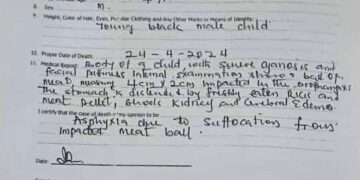 8. Sex M.
9. Height, Color of Hair, Eyes, Peculiar Clothing and Any Other Marks or Means of Identity:
Young black male child
10. Proper Date of Death: 24 - 4 - 2024
11. Medical Report: Body of a child with severe cyanosis and
facial puffiness internal examination shows a ball of
meat, measuring 4cm x 2cm impacted in the oropharynx
The stomach is distended by freshly eaten Rice and
meat pellet, shock kidney and Cerebral Edema
I certify that the cause of death in my opinion to be
Asphyxia due to suffocation from
Impacted meat ball.
Date: